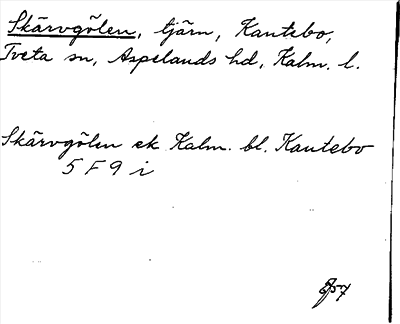 Skärvgölen, tjärn, Kantebo,
Tveta sn, Aspelands hd, Kalm. l.
Skärvgölen ek Kalm. bl. Kantebo
5 F 9 i
57